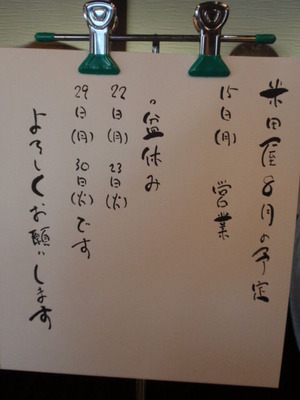 米田屋8月の予定
15日(月) 営業
お盆休み
22日(月) 23日(火)
29日(月) 30日(火)です
よろしくお願いします